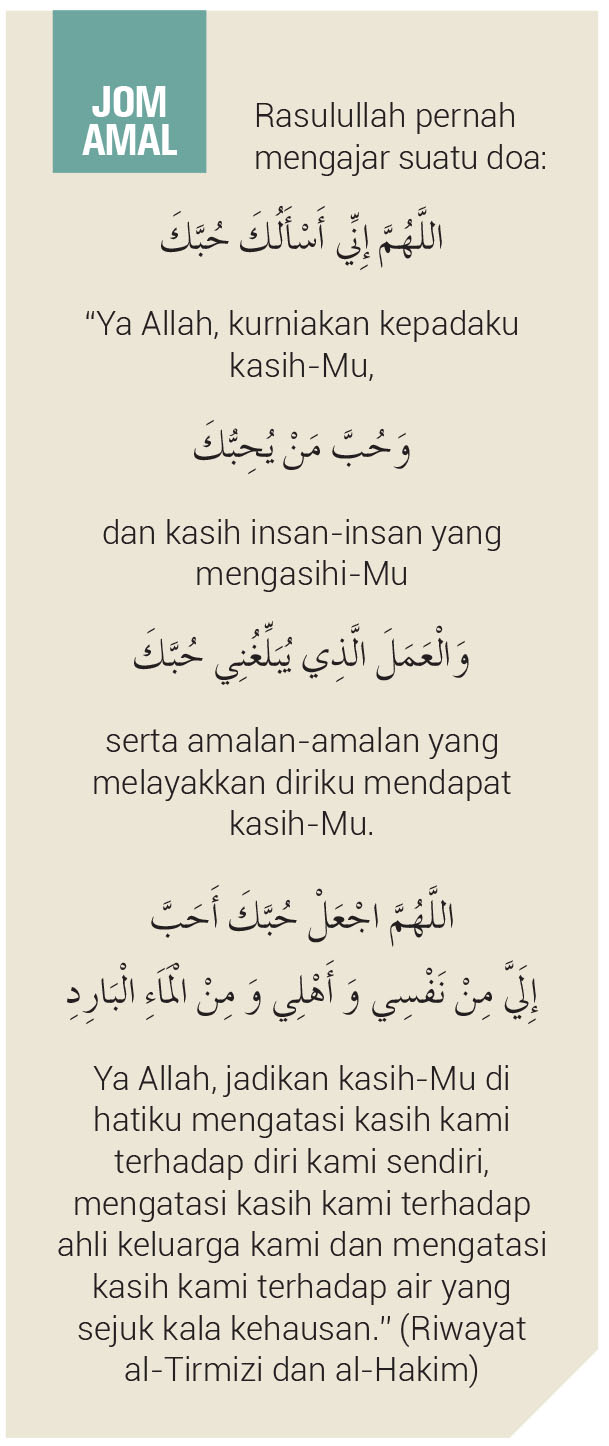 JOM
AMAL
Rasulullah pernah
mengajar suatu doa:
اللَّهُمَّ إِنِّي أَسْأَلُكَ حُبَّكَ
“Ya Allah, kurniakan kepadaku
kasih-Mu,
وَحُبَّ مَنْ يُحِبُّكَ
dan kasih insan-insan yang
mengasihi-Mu
وَالْعَمَلَ الَّذِي يُبَلِّغُنِي حُبَّكَ
serta amalan-amalan yang
melayakkan diriku mendapat
kasih-Mu.
اللَّهُمَّ اجْعَلْ حُبَّكَ أَحَبَّ
إِلَيَّ مِنْ نَفْسِي وَ أَهْلِي وَ مِنْ الْمَاَءِ الْبَارِدِ
Ya Allah, jadikan kasih-Mu di
hatiku mengatasi kasih kami
terhadap diri kami sendiri,
mengatasi kasih kami terhadap
ahli keluarga kami dan mengatasi
kasih kami terhadap air yang
sejuk kala kehausan.” (Riwayat
al-Tirmizi dan al-Hakim)